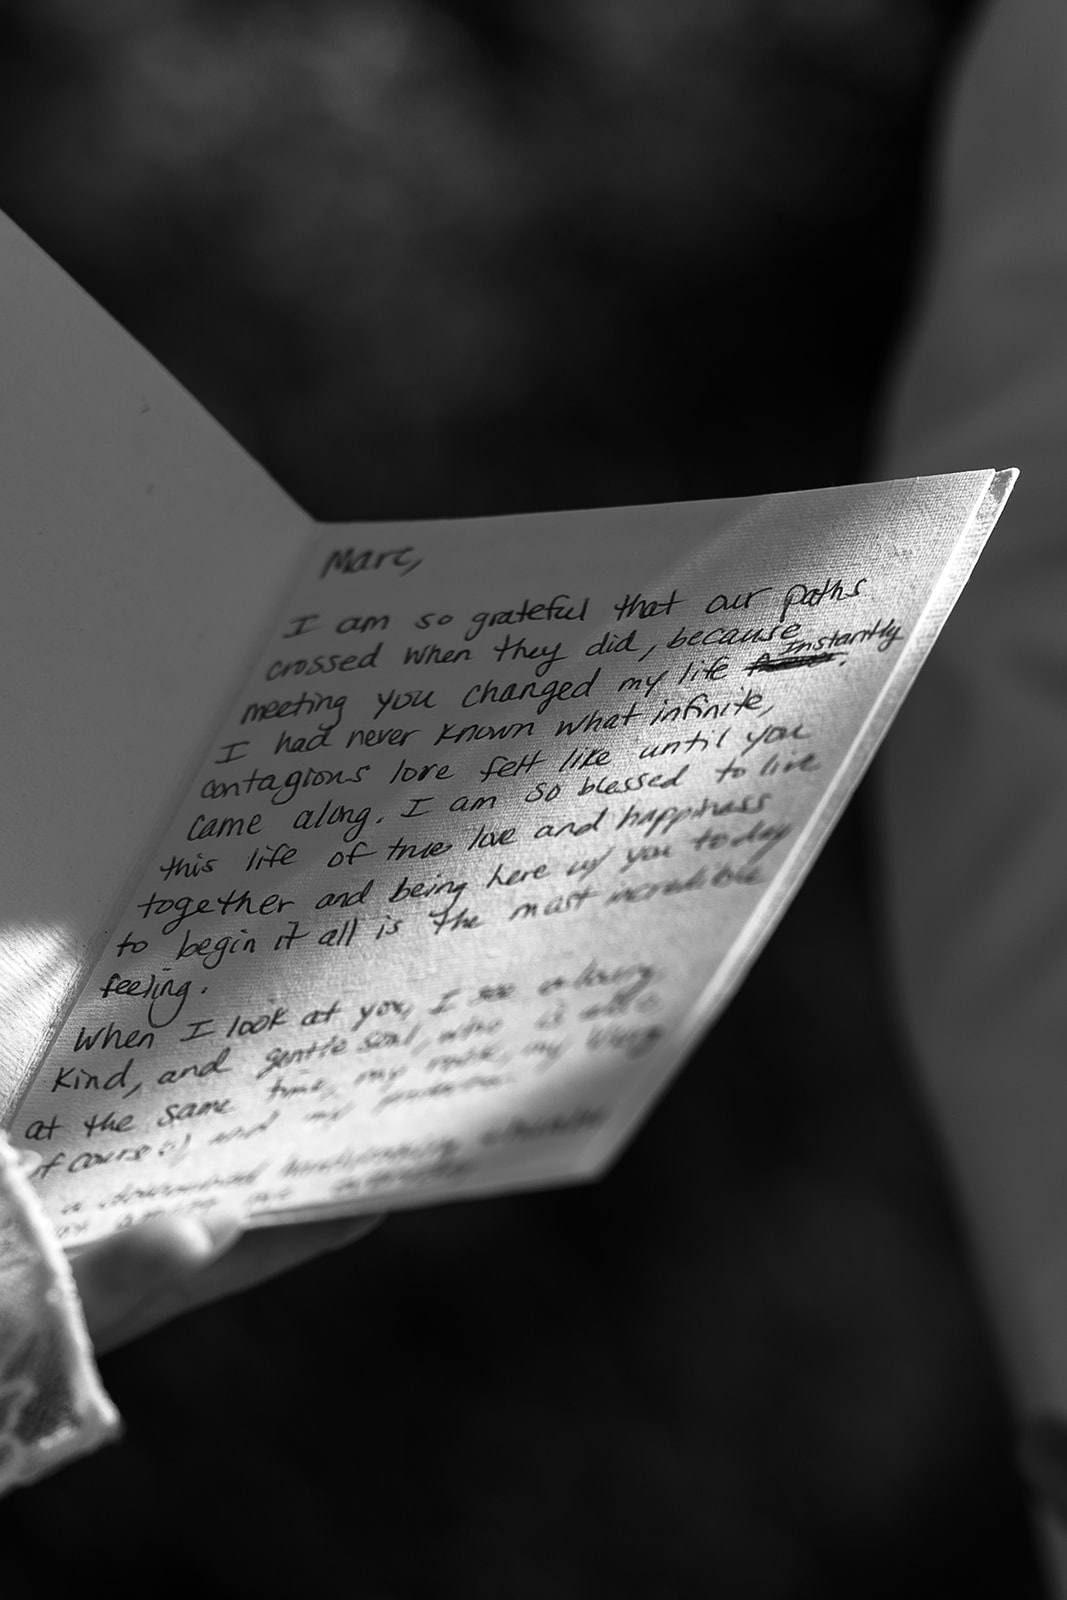 Marc,
I am so grateful that our paths
crossed when they did, because
meeting you changed my life Instantly.
I had never known what infinite,
contagious love felt like until you
came along. I am so blessed to live
this life of true love and happiness
together and being here w/ you today
to begin it all is the most incredible
feeling.
When I look at you, I see a loving
kind, and gentle soul, who is also
at the same time, my rock, my
of course :) and my
a